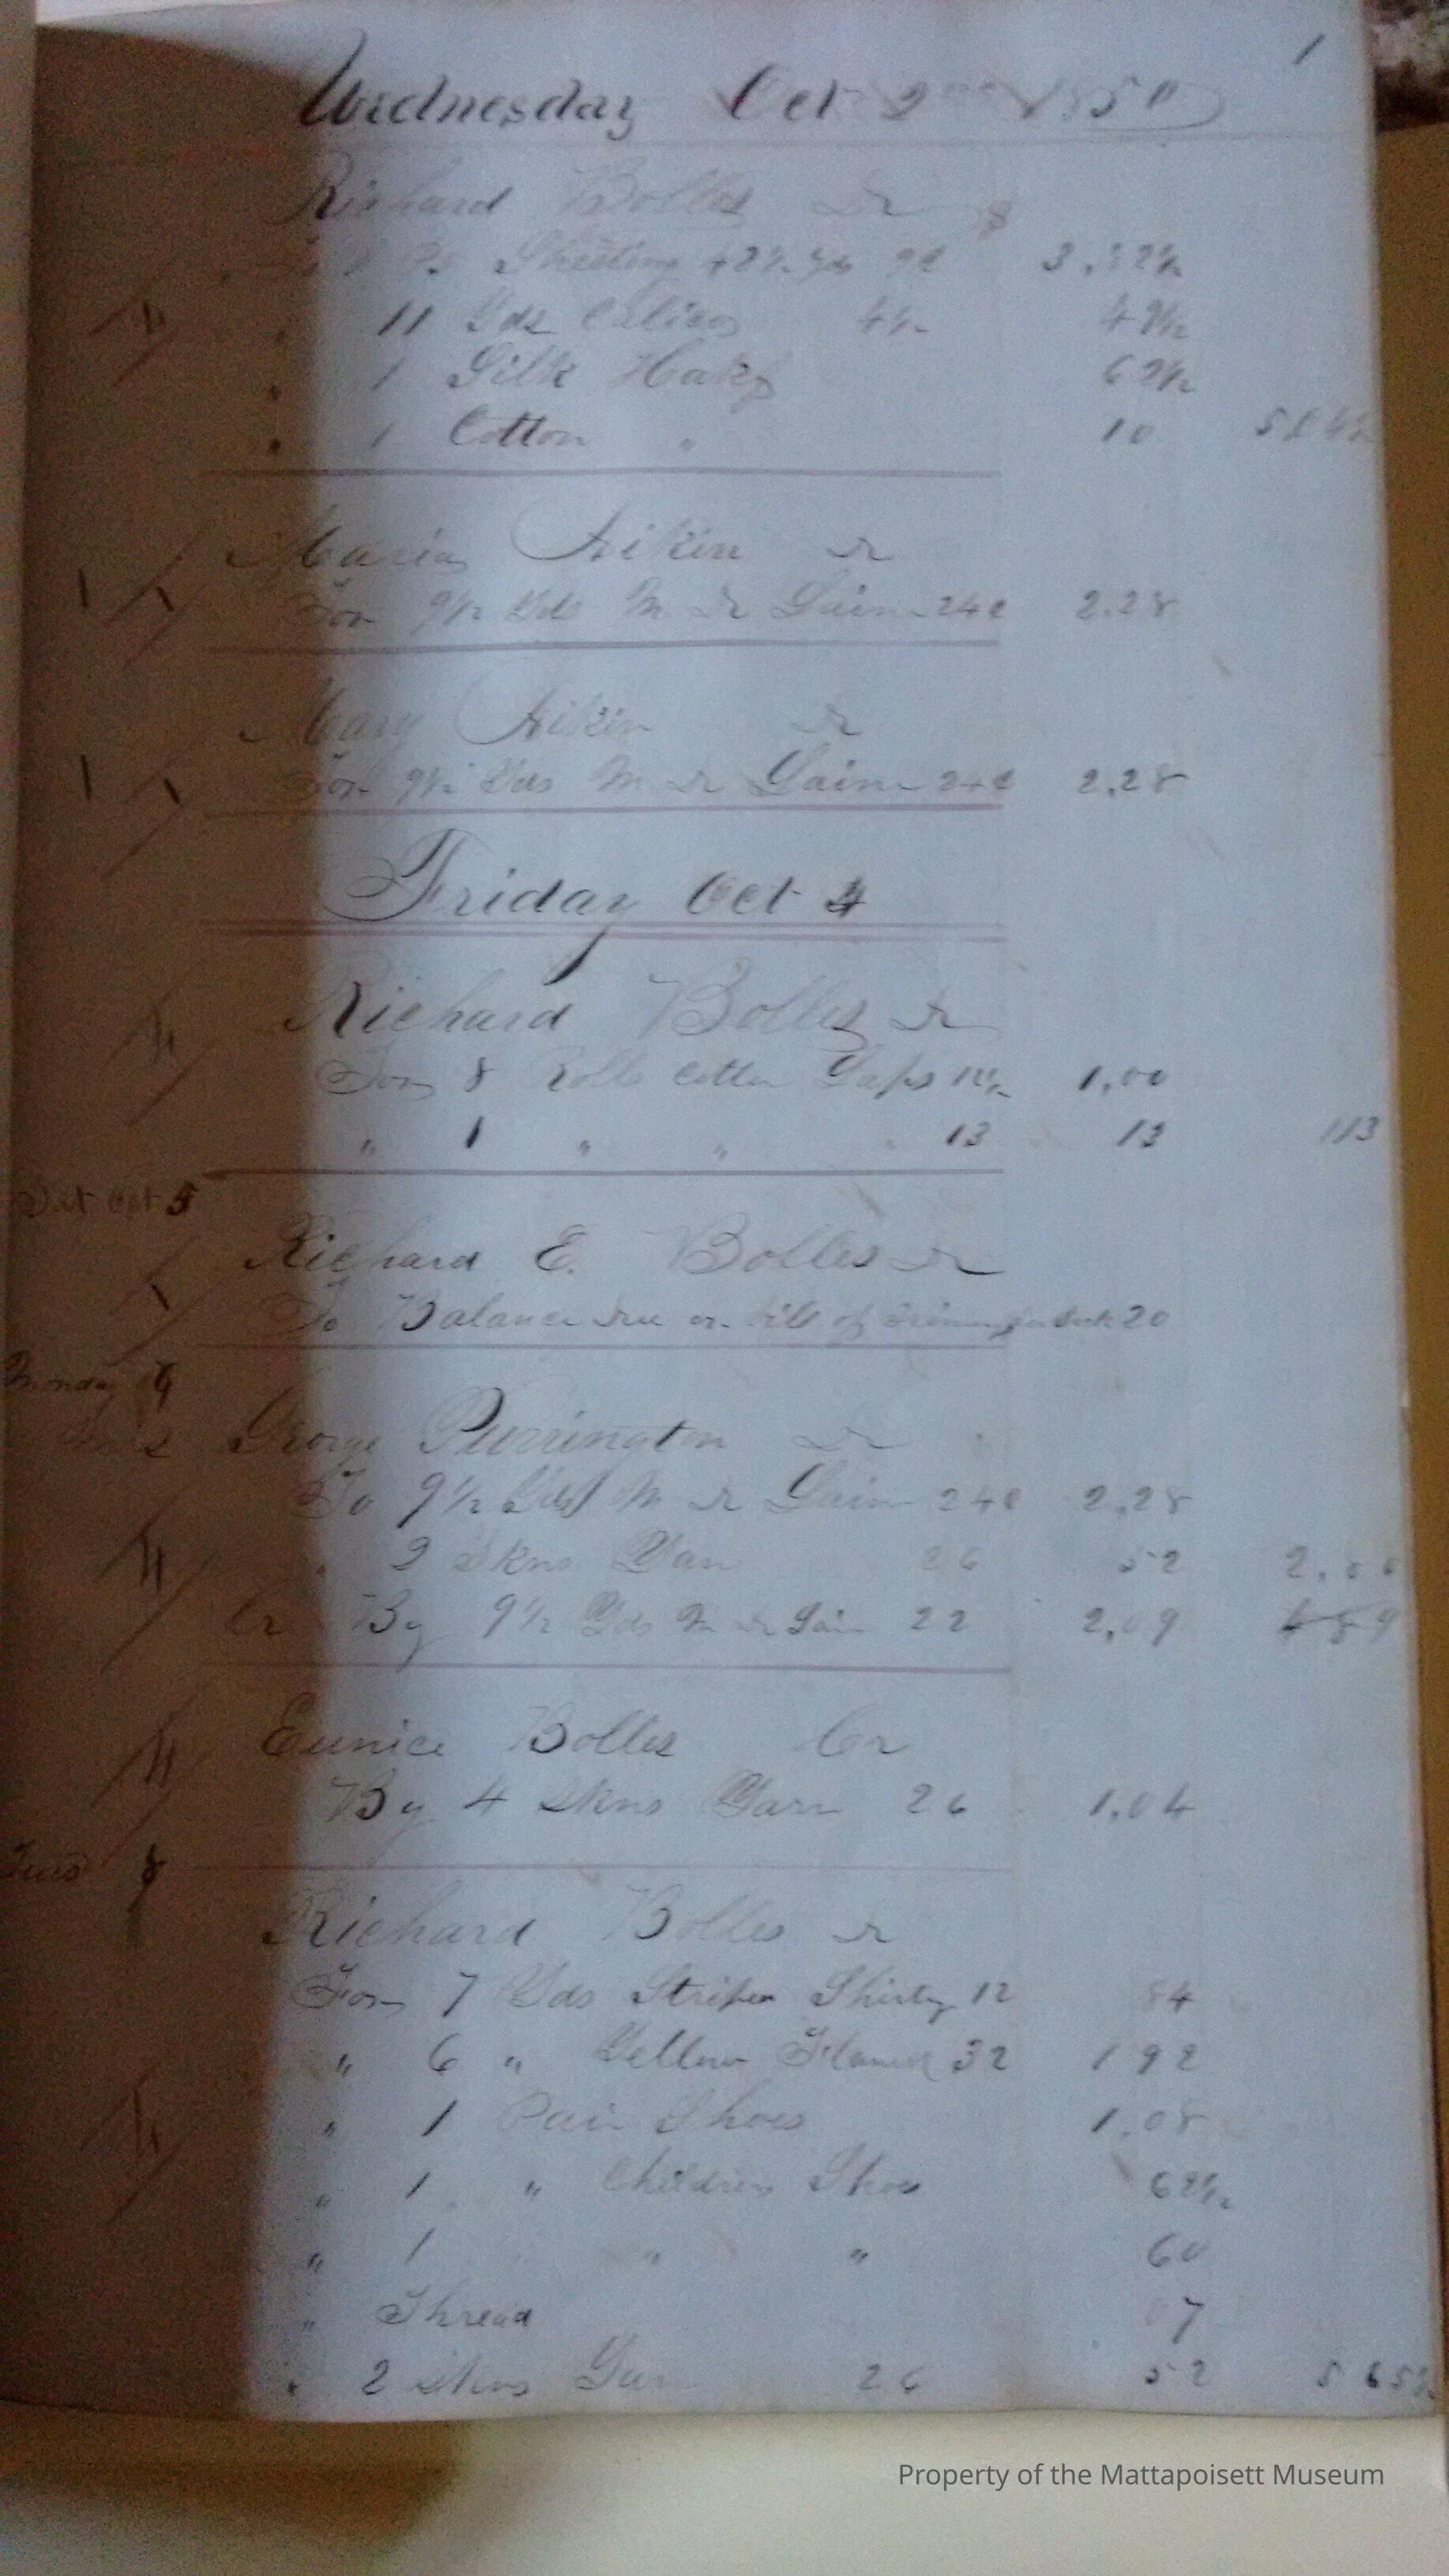 1
Wednesday Oct 2 1850
Richard Bolles Dr $
Sheeting 42½ yds 9c 3.82½
" 11 Yds Calico 4½ 49½
" 1 Silk Hdkf 62½
" 1 Cotton " 10 5.04½
Maria Aikin Dr
For 9½ Yds M De Lain 24c 2.28
Mary Aikin Dr
For 9½ Yds M De Lain 24c 2.28
Friday Oct 4
Richard Bolles Dr
For 8 Rolls Cotton Laps 12½ 1,00
" 1 " " " 13 13 113
Sat Oct 5
Richard E. Bolles Dr
To Balance due on bill of 20
Monday
George Purrington Dr
To 9½ Yds M De Lain 24c 2.28
" 2 Skns Yarn 26 52 2.80
Cr By 9½ Yds M De Lain 22 2,09 489
Eunice Bolles Cr
By 4 Skns Yarn 26 1.04
Tues 8
Richard Bolles Dr
For 7 Yds Stripe Shirtg 12 84
" 6 " Yellow Flannel 32 192
" 1 Pair Shoes 1.08
" 1 " Childrens Shoes 62½
" 1 " " 60
" Thread 07
" 2 Skns Yarn 26 52 5 65½
Property of the Mattapoisett Museum